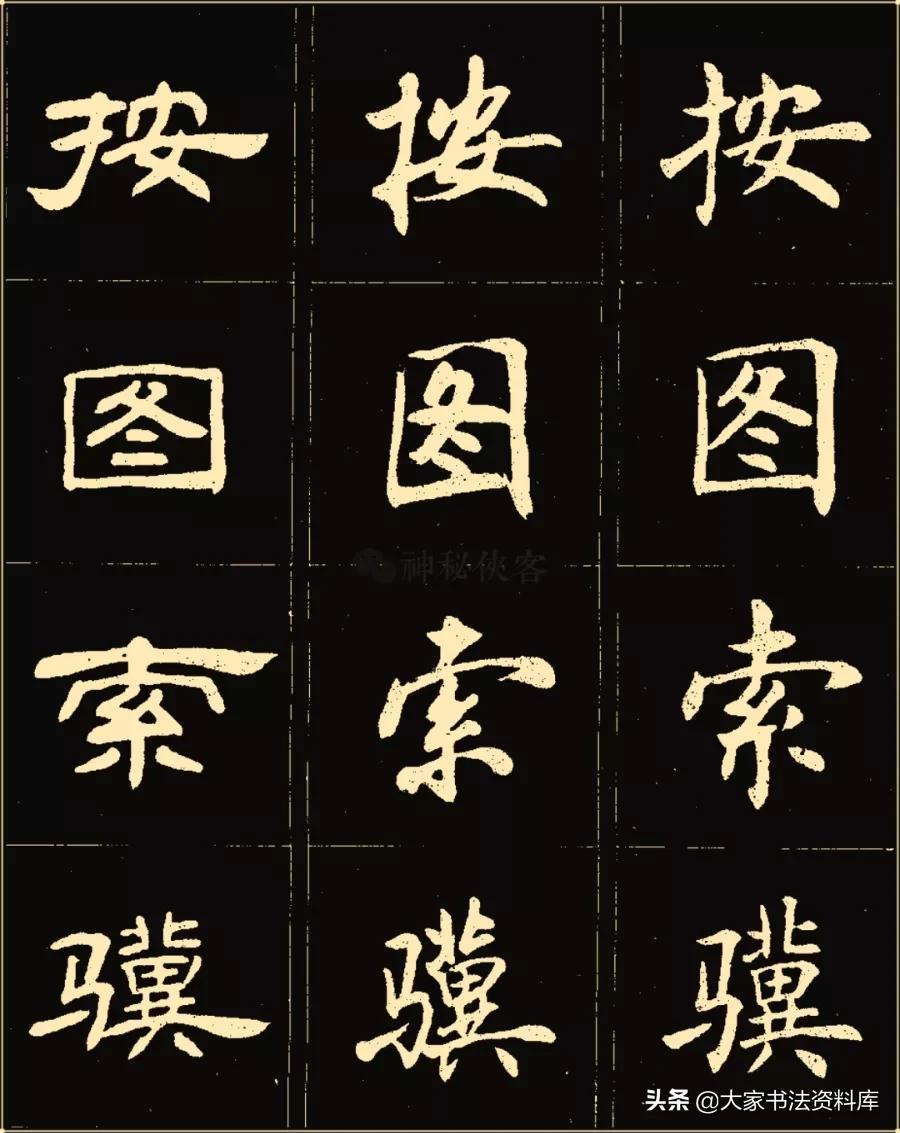 按 按 按
图 图 图
神秘侠客
索 索 索
骥 骥 骥
头条 @大家书法资料库